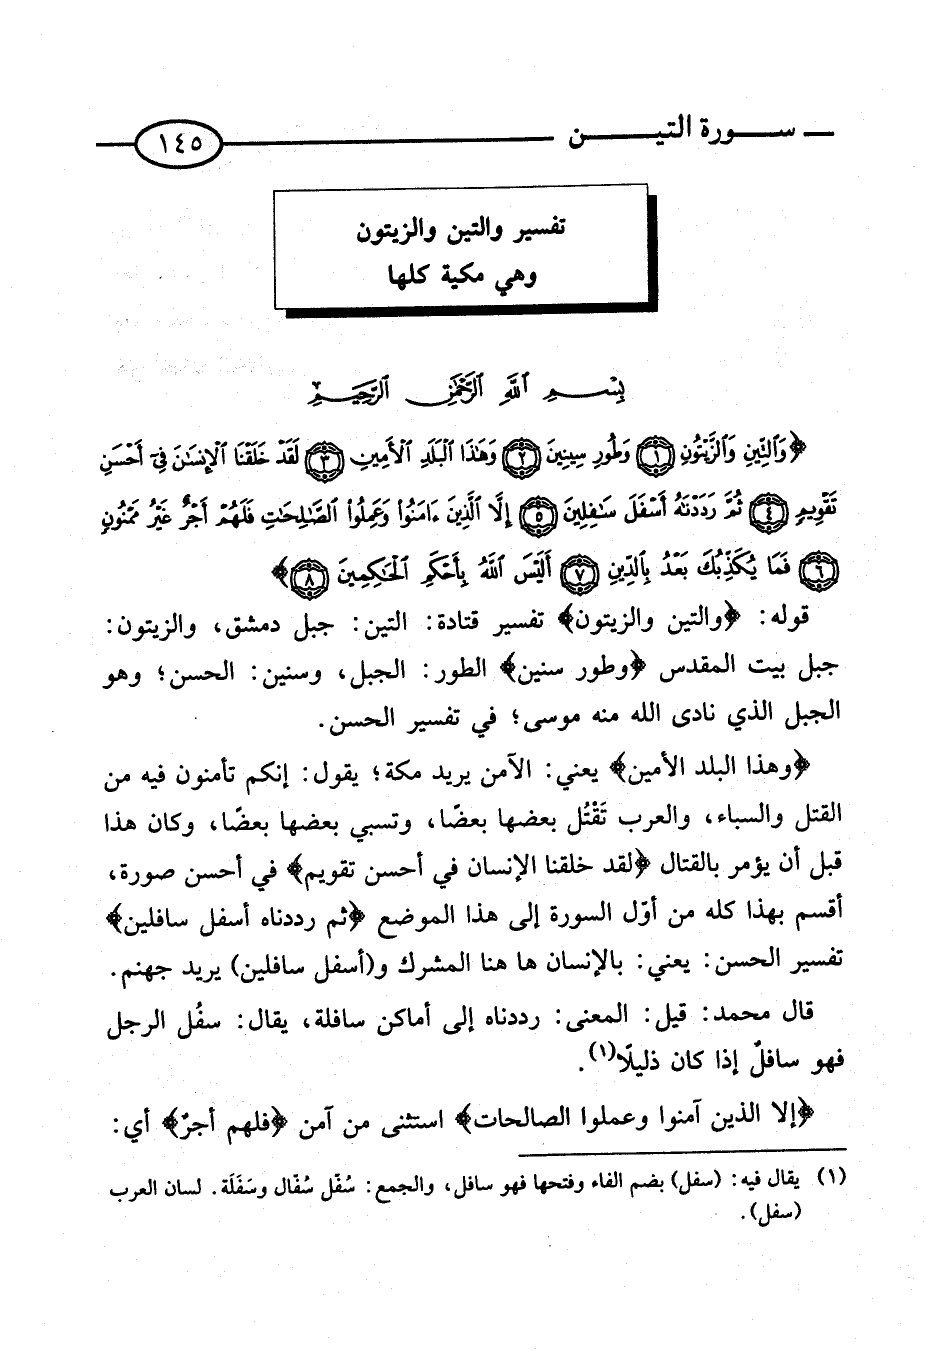 سورة التين ١٤٥
تفسير والتين والزيتون
وهي مكية كلها
بِسْمِ ٱللَّهِ ٱلرَّحْمَٰنِ ٱلرَّحِيمِ
﴿وَٱلتِّينِ وَٱلزَّيْتُونِ ١ وَطُورِ سِينِينَ ٢ وَهَٰذَا ٱلْبَلَدِ ٱلْأَمِينِ ٣ لَقَدْ خَلَقْنَا ٱلْإِنسَٰنَ فِىٓ أَحْسَنِ
تَقْوِيمٍ ٤ ثُمَّ رَدَدْنَٰهُ أَسْفَلَ سَٰفِلِينَ ٥ إِلَّا ٱلَّذِينَ ءَامَنُوا۟ وَعَمِلُوا۟ ٱلصَّٰلِحَٰتِ فَلَهُمْ أَجْرٌ غَيْرُ مَمْنُونٍ
٦ فَمَا يُكَذِّبُكَ بَعْدُ بِٱلدِّينِ ٧ أَلَيْسَ ٱللَّهُ بِأَحْكَمِ ٱلْحَٰكِمِينَ ٨﴾
قوله: ﴿والتين والزيتون﴾ تفسير قتادة: التين: جبل دمشق، والزيتون:
جبل بيت المقدس ﴿وطور سنين﴾ الطور: الجبل، وسنين: الحسن؛ وهو
الجبل الذي نادى الله منه موسى؛ في تفسير الحسن.
﴿وهذا البلد الأمين﴾ يعني: الآمن يريد مكة؛ يقول: إنكم تأمنون فيه من
القتل والسباء، والعرب تَقْتُل بعضها بعضًا، وتسبي بعضها بعضًا، وكان هذا
قبل أن يؤمر بالقتال ﴿لقد خلقنا الإنسان في أحسن تقويم﴾ في أحسن صورة،
أقسم بهذا كله من أوّل السورة إلى هذا الموضع ﴿ثم رددناه أسفل سافلين﴾
تفسير الحسن: يعني: بالإنسان ها هنا المشرك و(أسفل سافلين) يريد جهنم.
قال محمد: قيل: المعنى: رددناه إلى أماكن سافلة، يقال: سفُل الرجل
فهو سافلٌ إذا كان ذليلًا(١).
﴿إلا الذين آمنوا وعملوا الصالحات﴾ استثنى من آمن ﴿فلهم أجرٌ﴾ أي:
(١) يقال فيه: (سفل) بضم الفاء وفتحها فهو سافل، والجمع: سُفّل سُفّال وسَفَلَة. لسان العرب
(سفل).